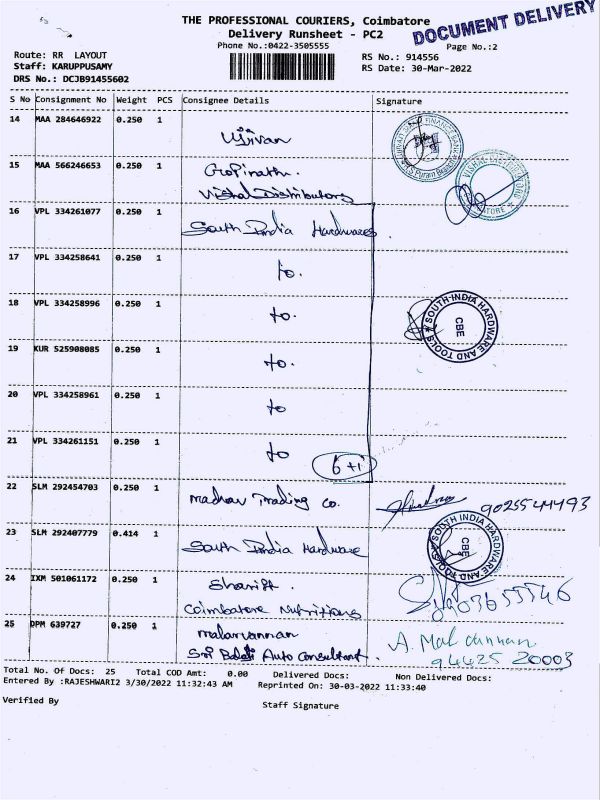 THE PROFESSIONAL COURIERS, Coimbatore
DOCUMENT DELIVERY
Delivery Runsheet - PC2
Phone No.:0422-3505555
Page No.:2
Route: RR LAYOUT
RS No.: 914556
Staff: KARUPPUSAMY
RS Date: 30-Mar-2022
DRS No.: DCJB91455602
S No Consignment No Weight PCS Consignee Details Signature
14 MAA 284646922 0.250 1
Ujjivan
15 MAA 566246653 0.250 1
Gopinath.
Vishal Distributors
16 VPL 334261077 0.250 1
South India Hardwares
17 VPL 334258641 0.250 1
to.
18 VPL 334258996 0.250 1
to.
SOUTH INDIA HARDWARE AND TOOLS
CBE
19 KUR 525908085 0.250 1
to.
20 VPL 334258961 0.250 1
to
21 VPL 334261151 0.250 1
to
6+1
22 SLM 292454703 0.250 1
Madhav Trading Co.
9025544493
23 SLM 292407779 0.414 1
South India Hardware
SOUTH INDIA HARDWARE AND TOOLS
CBE
24 IXM 501061172 0.250 1
Shariff.
Coimbatore Nutritions
25 DPM 639727 0.250 1
Malarvannan
Sri Balaji Auto Consultant.
94425 20003
Total No. Of Docs: 25 Total COD Amt: 0.00 Delivered Docs: Non Delivered Docs:
Entered By :RAJESHWARI2 3/30/2022 11:32:43 AM Reprinted On: 30-03-2022 11:33:40
Verified By
Staff Signature